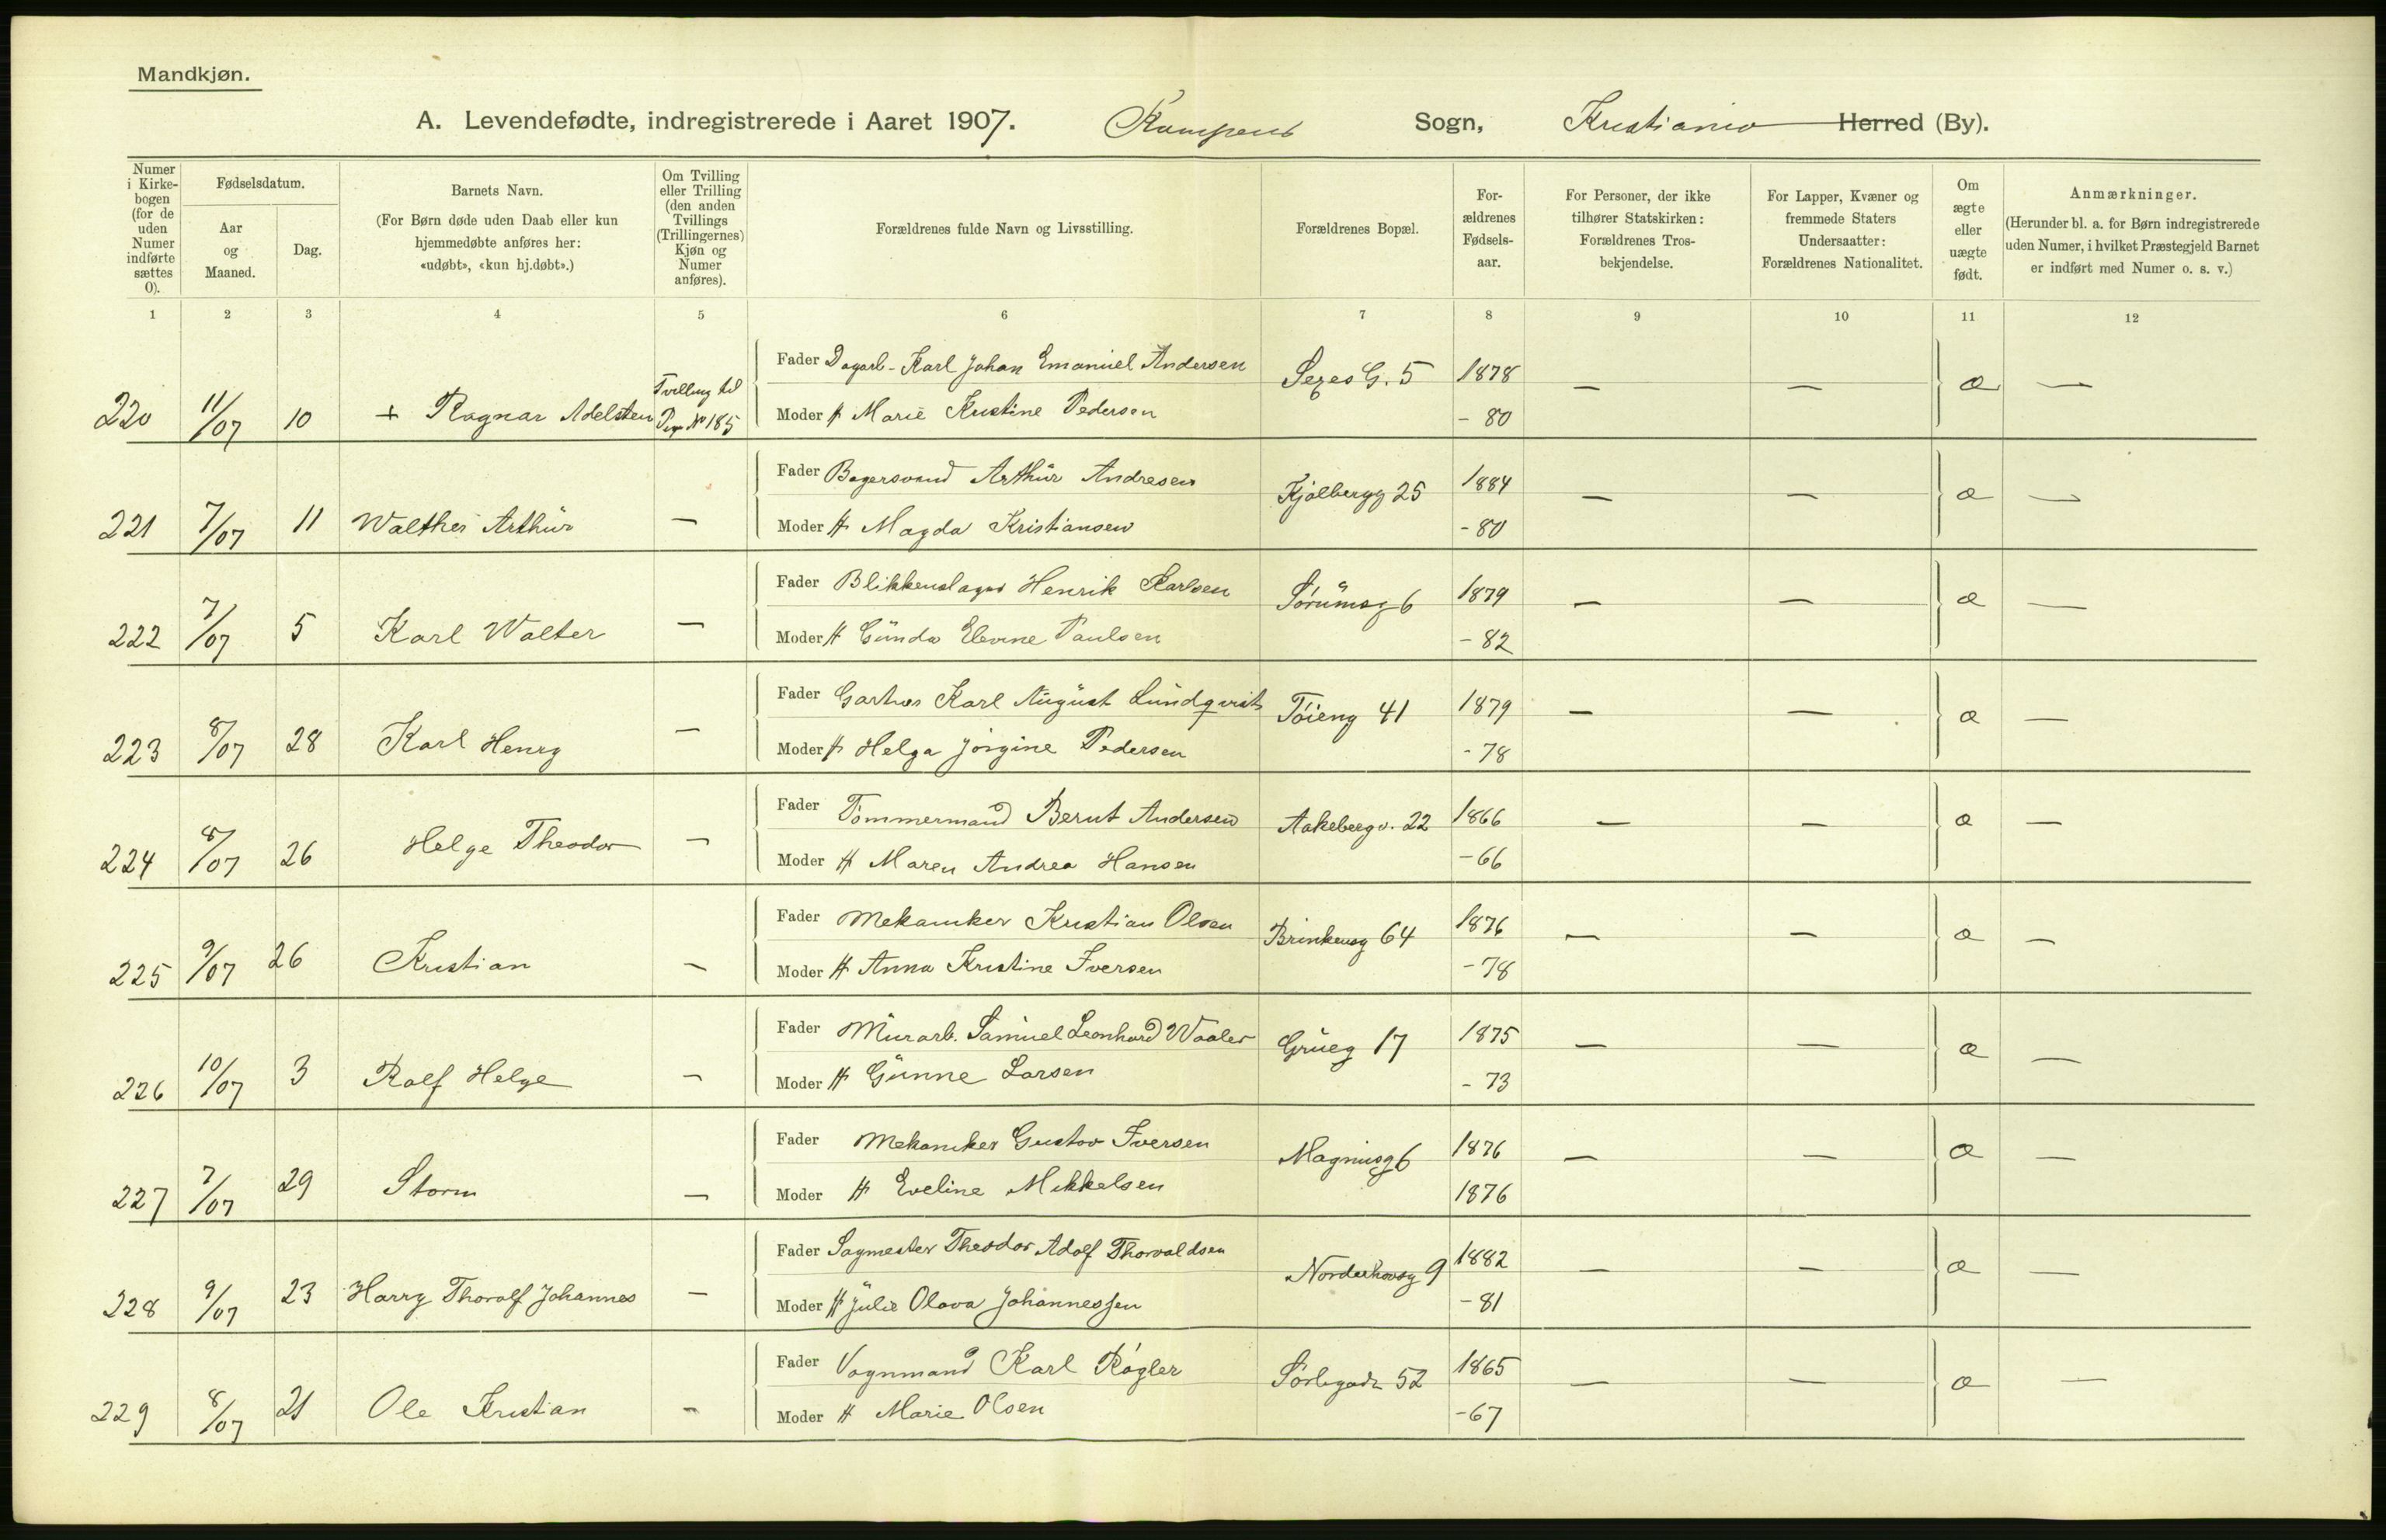 Mandkjøn.
A. Levendefødte, indregistrerede i Aaret 1907. Kampens Sogn, Kristiania Herred (By).
Numer i Kirkebogen (for de uden Numer indførte sættes 0).
Fødselsdatum.
Aar og Maaned.
Dag.
Barnets Navn.
(For Børn døde uden Daab eller kun hjemmedøbte anføres her: «udøbt», «kun hj.døbt».)
Om Tvilling eller Trilling (den anden Tvillings (Trillingernes) Kjøn og Numer anføres).
Forældrenes fulde Navn og Livsstilling.
Forældrenes Bopæl.
For-ældrenes Fødsels-aar.
For Personer, der ikke tilhører Statskirken: Forældrenes Tros-bekjendelse.
For Lapper, Kvæner og fremmede Staters Undersaatter: Forældrenes Nationalitet.
Om ægte eller uægte født.
Anmærkninger.
(Herunder bl. a. for Børn indregistrerede uden Numer, i hvilket Præstegjeld Barnet er indført med Numer o. s. v.)
1 2 3 4 5 6 7 8 9 10 11 12
220 11/07 10 + Ragnar Adelsten Tvilling til Pige No 185 Fader Dagarb. Karl Johan Emanuel Andersen G. 5 1878 — — æ —
Moder H Marie Kristine Pedersen - 80
221 7/07 11 Walther Arthur — Fader Bagersvend Arthur Andresen Kjølbergg 25 1884 — — æ —
Moder H Magda Kristiansen - 80
222 7/07 5 Karl Walter — Fader Blikkenslager Henrik Karlsen Sørumsg 6 1879 — — æ —
Moder H Gunda Elevine Paulsen - 82
223 8/07 28 Karl Henry — Fader Karl August Lundqvist Tøieng 41 1879 — — æ —
Moder H Helga Jørgine Pedersen - 78
224 8/07 26 Helge Theodor — Fader Tømmermand Bernt Andersen Aakebergv. 22 1866 — — æ —
Moder H Maren Andrea Hansen - 66
225 9/07 26 Kristian — Fader Mekaniker Kristian Olsen Brinkensg 64 1876 — — æ —
Moder H Anna Kristine Iversen - 78
226 10/07 3 Ralf Helge — Fader Murarb. Samuel Leonhard Waaler Grueg 17 1875 — — æ —
Moder H Gunne Larsen - 73
227 7/07 29 Storm — Fader Mekaniker Gustav Iversen Magnusg 6 1876 — — æ —
Moder H Eveline Mikkelsen 1876
228 9/07 23 Harry Thoralf Johannes — Fader Sagmester Theodor Adolf Thorvaldsen Norderhovsg 9 1882 — — æ —
Moder H Julie Olava Johannessen - 81
229 8/07 21 Ole Kristian - Fader Vognmand Karl Røgler Sørligada 52 1865 — — æ —
Moder H Marie Olsen - 67